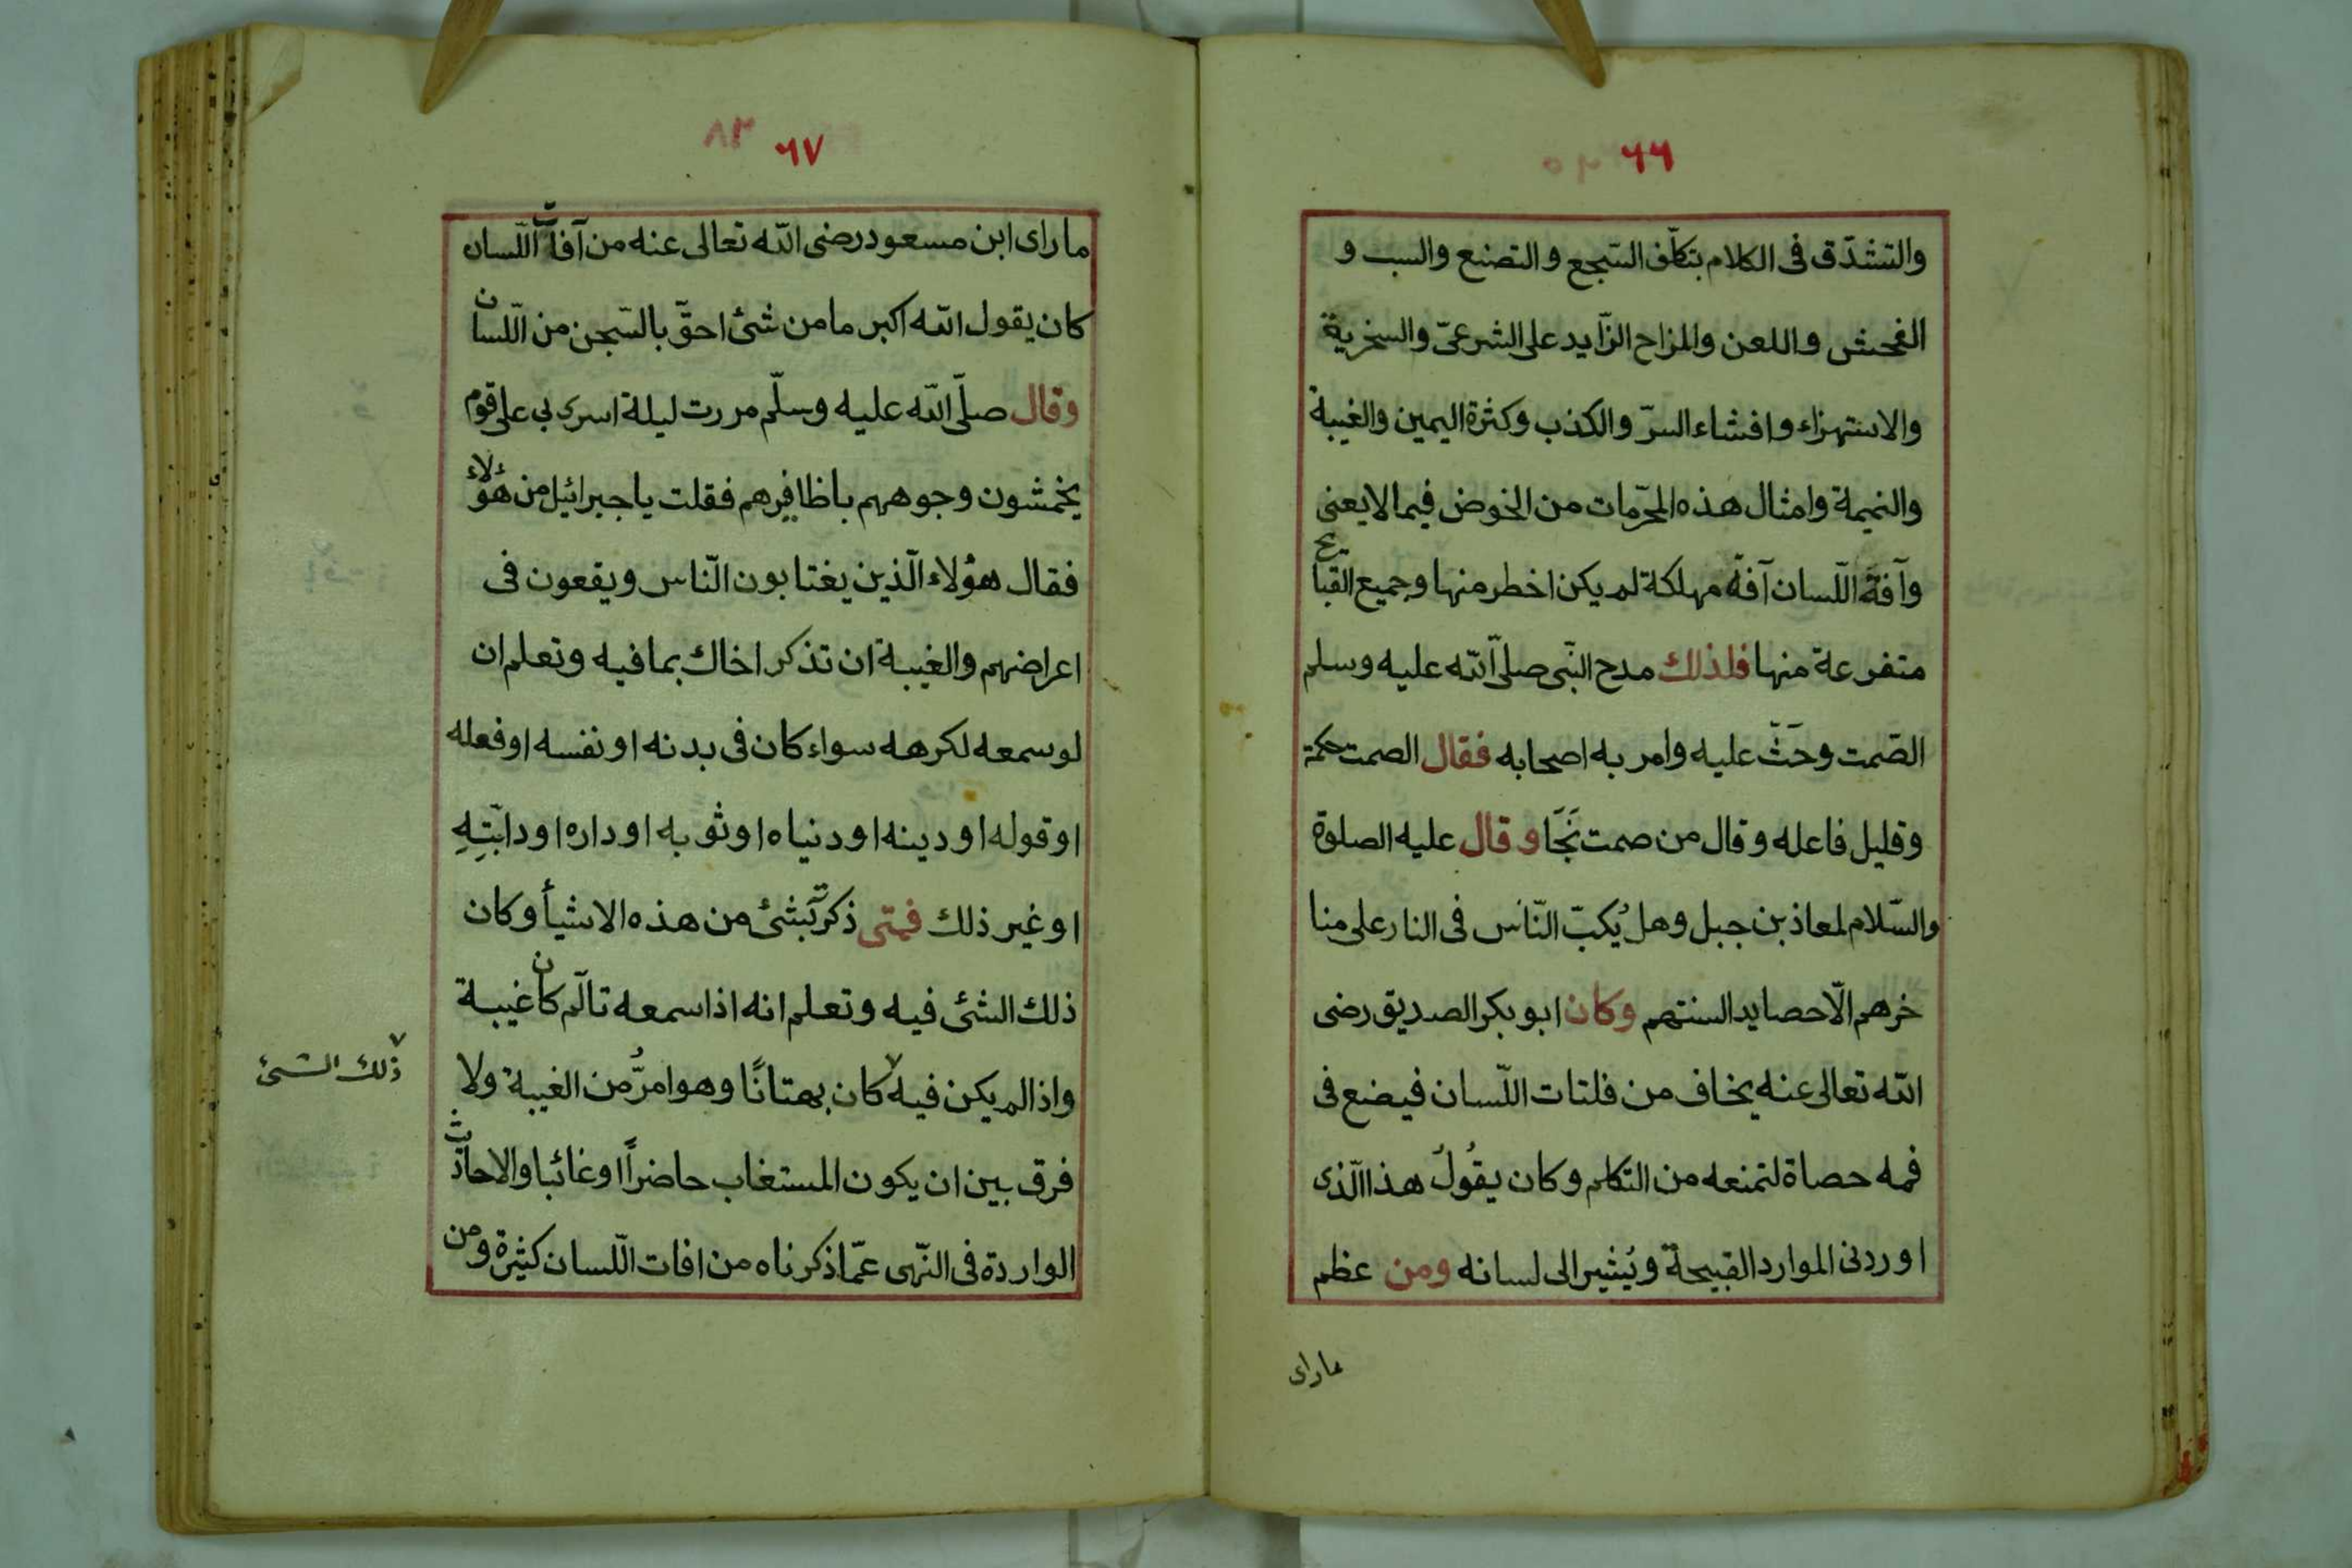 ٦٦
والتشدّق فى الكلام بتكلّف السّجع والتصنع والسب و
الفحش واللعن والمزاح الزّايد على الشرعىّ والسخرية
والاستهزاء وافشاء السرّ والكذب وكثرة اليمين والغيبة
والنميمة وامثال هذه المحرّمات من الخوض فيما لا يعنى
وآفة اللّسان آفة مهلكة لم يكن اخطر منها وجميع القبايح
متفرعة منها فلذلك مدح النّبى صلى الله عليه وسلم
الصّمت وحَثّ عليه وامر به اصحابه فقال الصمت حكمة
وقليل فاعله وقال من صمت نَجَا وقال عليه الصلوة
والسّلام لمعاذ بن جبل وهل يُكبّ النّاس فى النار على منا
خرهم الّا حصايد السنتهم وكان ابو بكر الصديق رضى
الله تعالى عنه يخاف من فلتات اللّسان فيضع فى
فمه حصاة لتمنعه من التكلم وكان يقُولُ هذا الّذى
اوردنى الموارد القبيحة ويُشير الى لسانه ومن عظم
ماراى
٦٧
٨٣
ماراى ابن مسعود رضى الله تعالى عنه من آفات اللّسان
كان يقول الله اكبر ما من شئ احقّ بالسّجن من اللّسان
وقال صلّى الله عليه وسلّم مررت ليلة اسرى بى على قوم
يخمشون وجوههم باظافيرهم فقلت يا جبرائيل من هؤلاء
فقال هؤلاء الّذين يغتابون النّاس ويقعون فى
اعراضهم والغيبة ان تذكر اخاك بما فيه وتعلم ان
لو سمعه لكرهه سواء كان فى بدنه او نفسه او فعله
او قوله او دينه او دنياه او ثوبه او داره او دابّتِهِ
او غير ذلك فمتى ذكرت بشئ من هذه الاشيأ وكان
ذلك الشئ فيه وتعلم انه اذا سمعه تألّم كان غيبة
واذا لم يكن فيه كان بهتانًا وهو امرُّ من الغيبة ولا
ذلك الشئ
فرق بين ان يكون المستغاب حاضراً او غائبا والاحاديث
الواردة فى النّهى عمّا ذكرناه من افات اللّسان كثيرة ومن